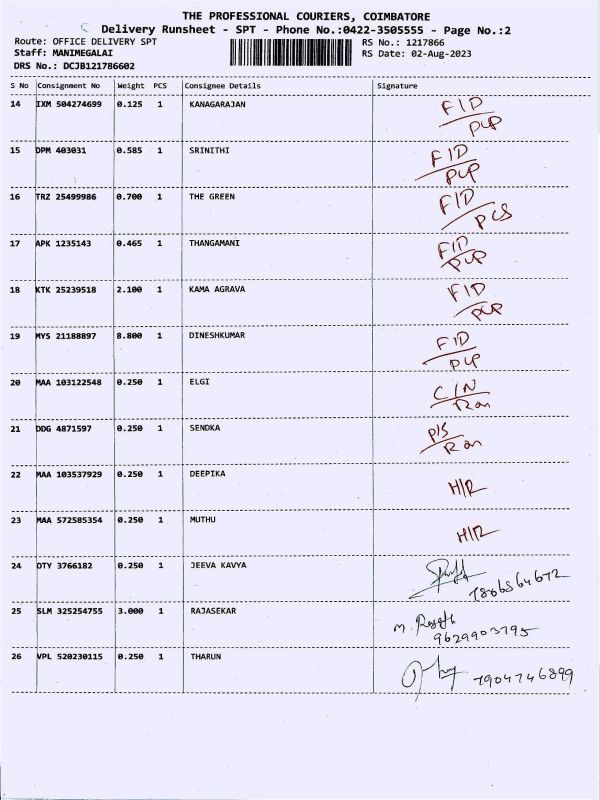 THE PROFESSIONAL COURIERS, COIMBATORE
Delivery Runsheet - SPT - Phone No.:0422-3505555 - Page No.:2
Route: OFFICE DELIVERY SPT RS No.: 1217866
Staff: MANIMEGALAI RS Date: 02-Aug-2023
DRS No.: DCJB121786602
S No Consignment No Weight PCS Consignee Details Signature
14 IXM 504274699 0.125 1 KANAGARAJAN F/D
PCP
15 DPM 403031 0.585 1 SRINITHI F/D
PCP
16 TRZ 25499986 0.700 1 THE GREEN F/D
PCS
17 APK 1235143 0.465 1 THANGAMANI F/D
PCP
18 KTK 25239518 2.100 1 KAMA AGRAVA F/D
PCP
19 MYS 21188897 8.800 1 DINESHKUMAR F/D
PCP
20 MAA 103122548 0.250 1 ELGI C/N
Ran
21 DDG 4871597 0.250 1 SENDKA P/S
Ran
22 MAA 103537929 0.250 1 DEEPIKA H/R
23 MAA 572585354 0.250 1 MUTHU H/R
24 OTY 3766182 0.250 1 JEEVA KAVYA
7806564672
25 SLM 325254755 3.000 1 RAJASEKAR M.
9629903795
26 VPL 520230115 0.250 1 THARUN 7904746899